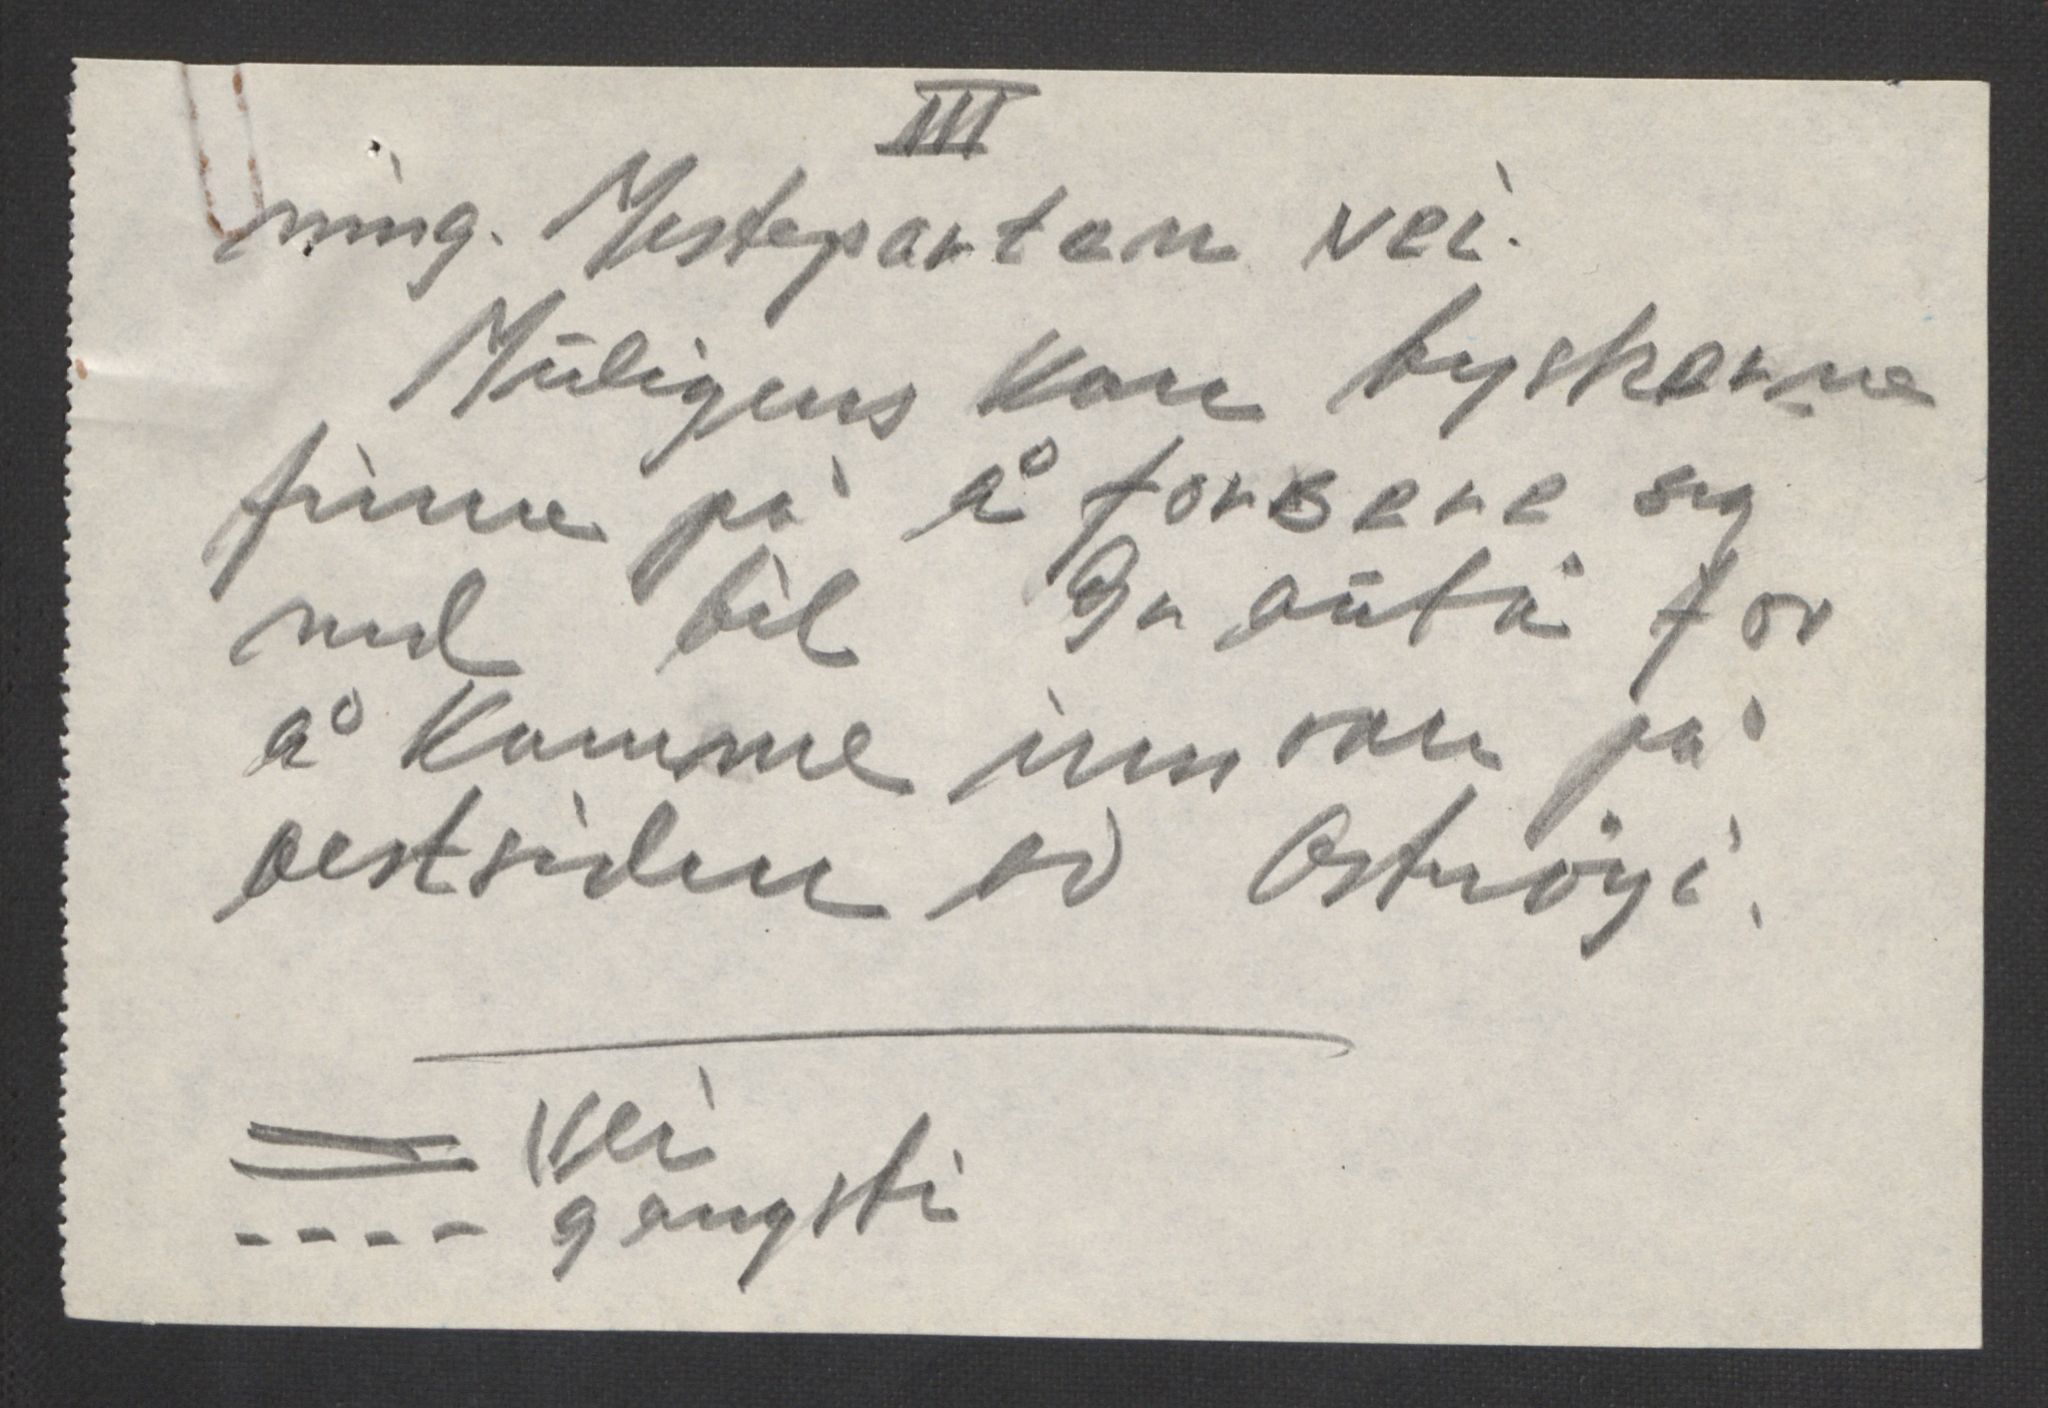 III
ning. Mesteparten vei.
Müligens kan tyskerne
finne på å forsere sig
ned til Grautå for
å komme innvan på
vestsiden av Ostnöyi.
vei
gangsti